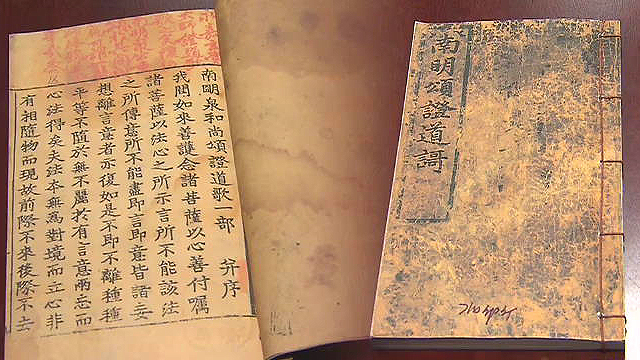 南明泉和尚頌證道歌一部 并序
我聞如來善護念諸菩薩以心善付囑
諸菩薩以法心之所示言所不能該法
之所傳意所不能盡即言即意皆諸妄
想離言意者亦復如是不即不離種種
平等不隨於無不屬於有言意兩忘而
心法得矣夫法本無為對境而立心非
有相隨物而現故前際不來後際不去
南明頌證道謌